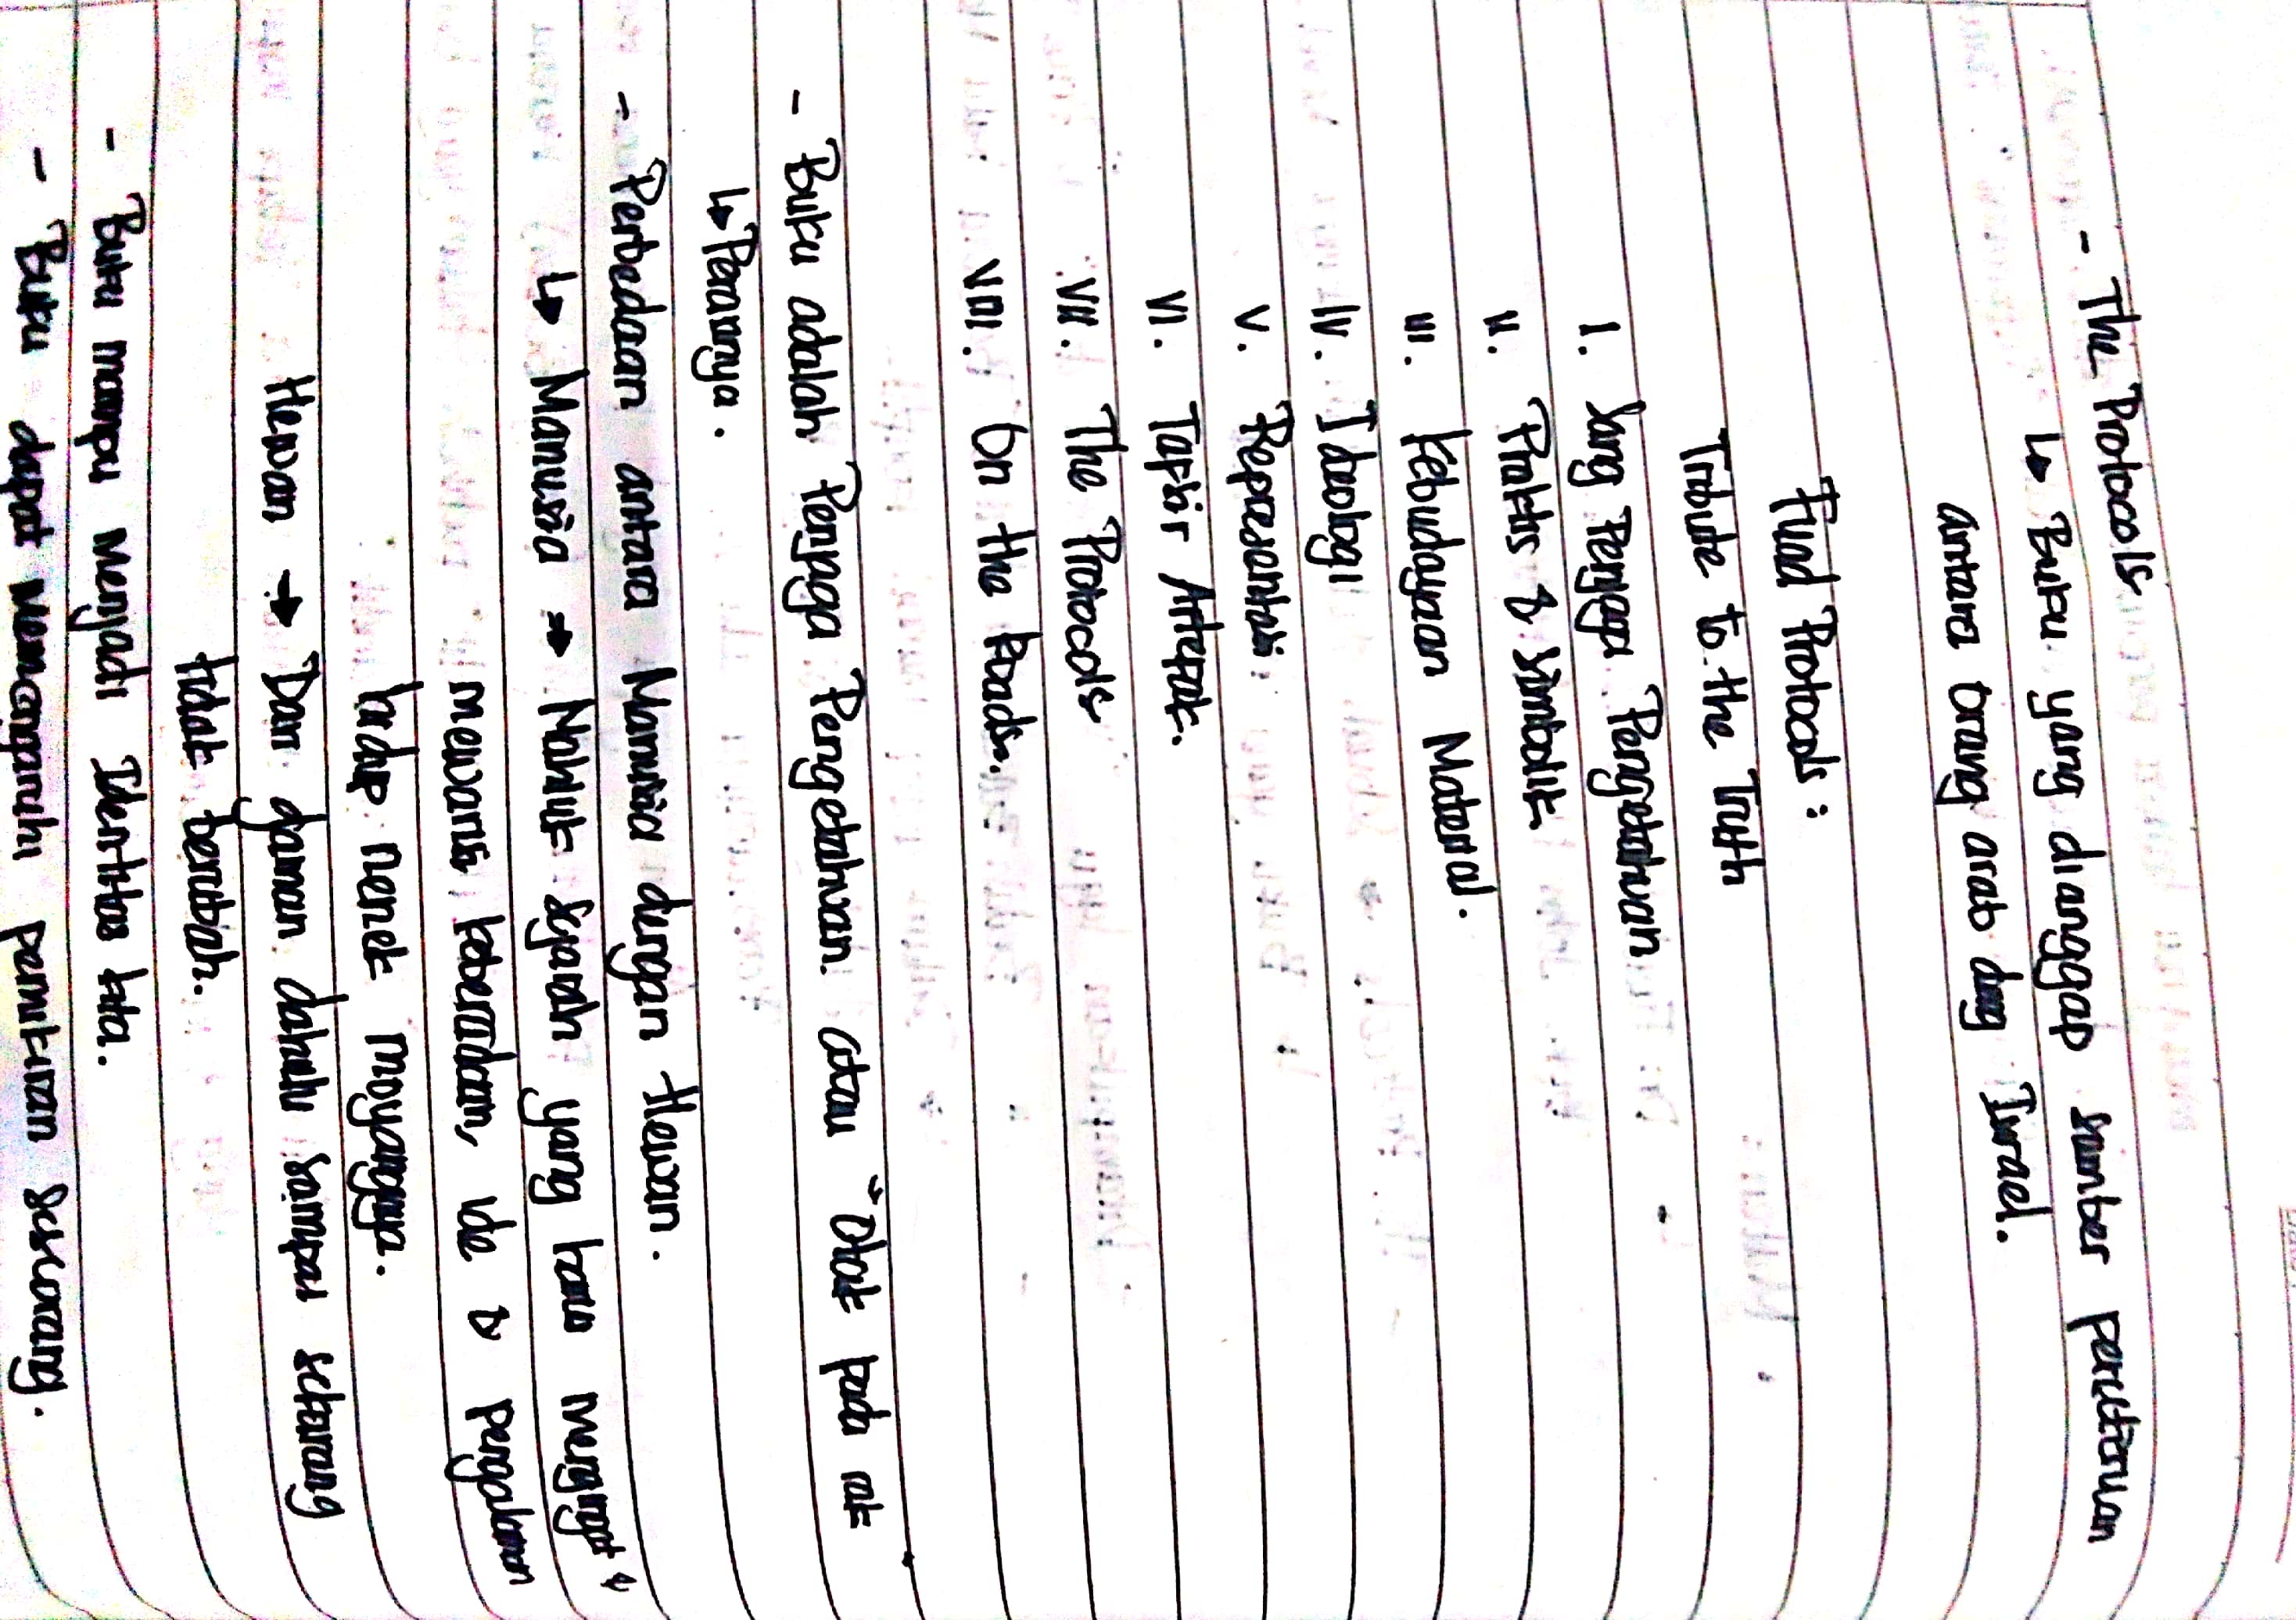 - The Protocols
↳ Buku yang dianggap sumber percetiruan
antara orang arab dng Israel.
Fuad Protocols :
Tribute to the Truth
I. Sang Penjaga Pengetahuan
II. Praktis & Simbolik
III. Kebudayaan Material.
IV. Ideologi
V. Representasi
VI. Tafsir Artefak.
VII. The Protocols
VIII. On the Roads.
- Buku adalah Penjaga Pengetahuan. atau "Otak pada rak
↳ Pecaranya.
- Perbedaan antara Manusia dengan Hewan.
↳ Manusia → Mahluk Sejarah yang bisa mengingat "
mewarisi keberadaan, ide & pengalaman
hidup nenek moyangnya.
Hewan → Dari zaman dahulu sampai sekarang
tidak berubah.
- Buku mampu menjadi Identitas kita.
- Buku dapat memengaruhi pemikiran seseorang.